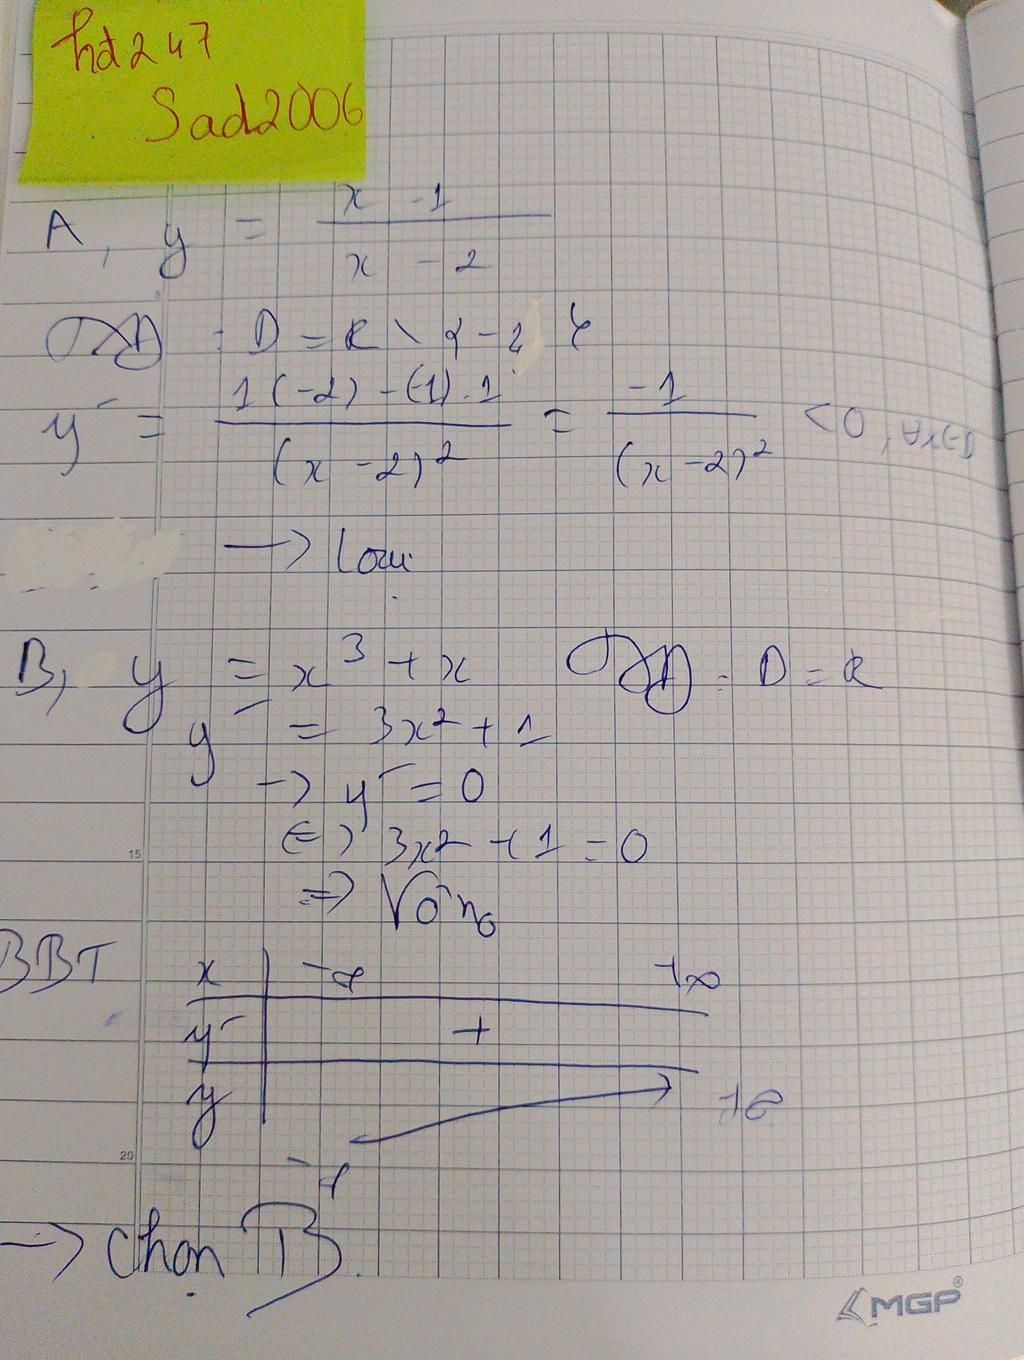 hd247
Sad2006
A, y = \frac{x - 1}{x - 2}
TXĐ : D = R \ {-2}
y' = \frac{1(-2) - (-1).1}{(x - 2)^2} = \frac{-1}{(x - 2)^2} < 0, ∀x∈D
→ Loại
B, y = x^3 + x TXĐ : D = R
y' = 3x^2 + 1
→ y' = 0
⇔ 3x^2 + 1 = 0
⇒ Vô n_0
BBT
x | -∞ +∞
y' | +
y | -∞ +∞
→ Chọn B.
MGP
5
15
20